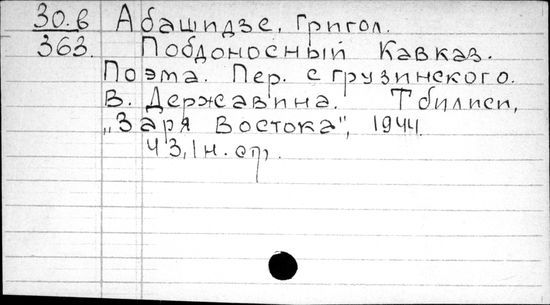 30.в Абашидзе, Григол.
363. Побдоносный Кавказ.
Поэма. Пер. с грузинского.
В. Державина. Тбилиси,
„Заря Востока", 1944.
43,1н. стр.